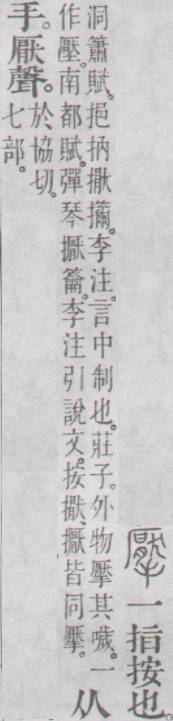 擪一指按也。
洞簫賦。挹抐擫㩶。李注。言中制也。莊子。外物擪其顪。一
作壓。南都賦。彈琴擫籥。李注引說文。按擫、擫皆同擪。
从
手。厭聲。於協切。
七部。